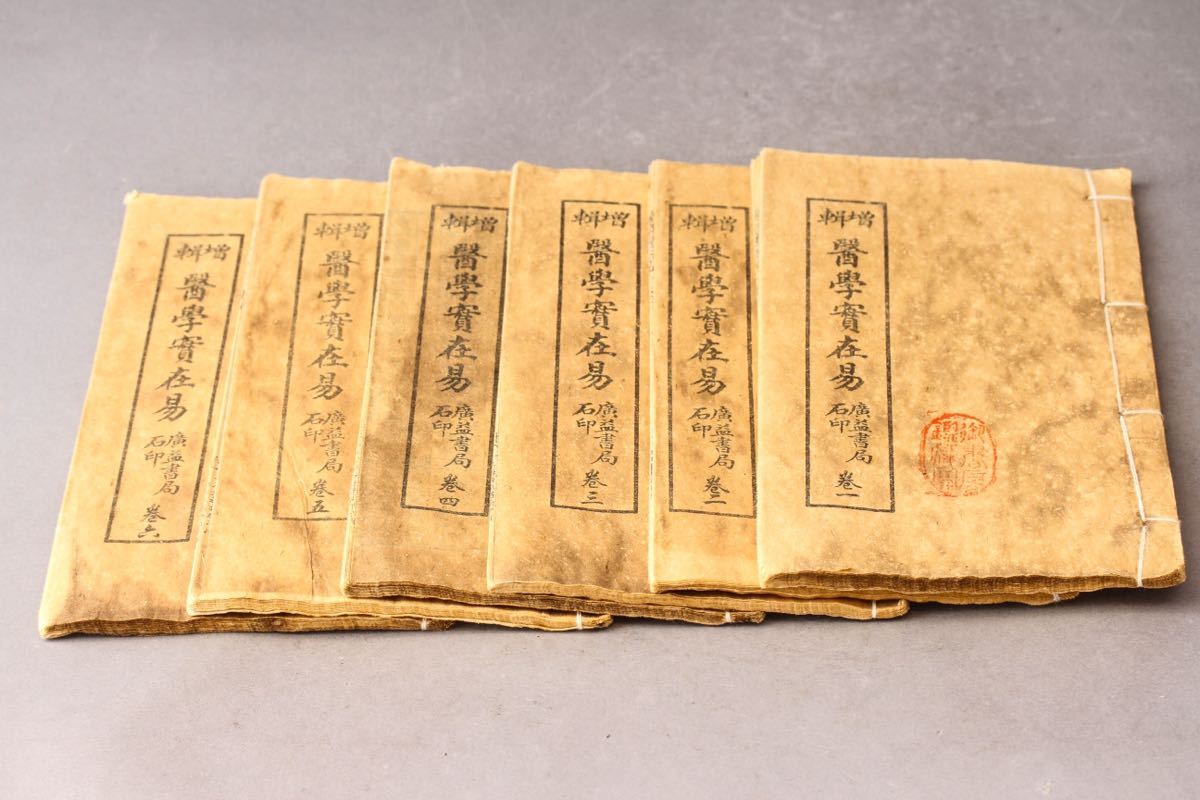 增輯
醫學實在易
廣益書局
石印
卷一
增輯
醫學實在易
廣益書局
石印
卷二
增輯
醫學實在易
廣益書局
石印
卷三
增輯
醫學實在易
廣益書局
石印
卷四
增輯
醫學實在易
廣益書局
石印
卷五
增輯
醫學實在易
廣益書局
石印
卷六